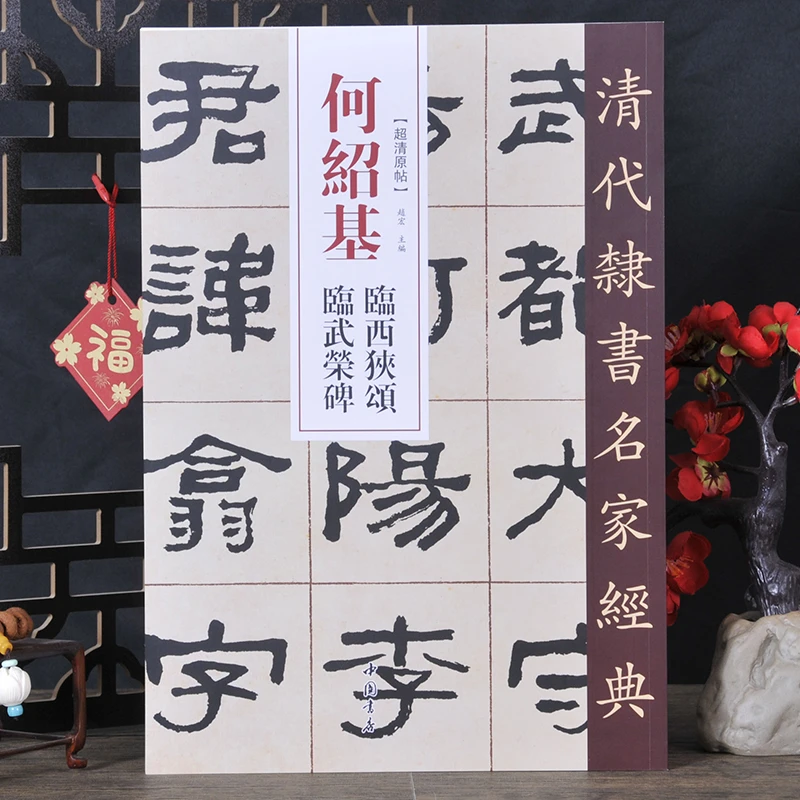 清代隸書名家經典
武都大守
陽李
君諱翕字
【超清原帖】
趙宏 主編
何紹基
臨西狹頌
臨武榮碑
中國書店
福